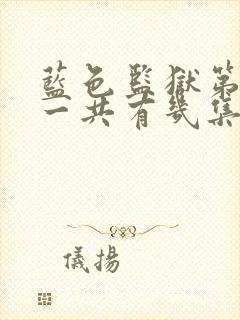 藍色監獄第
一共有幾集
儀揚